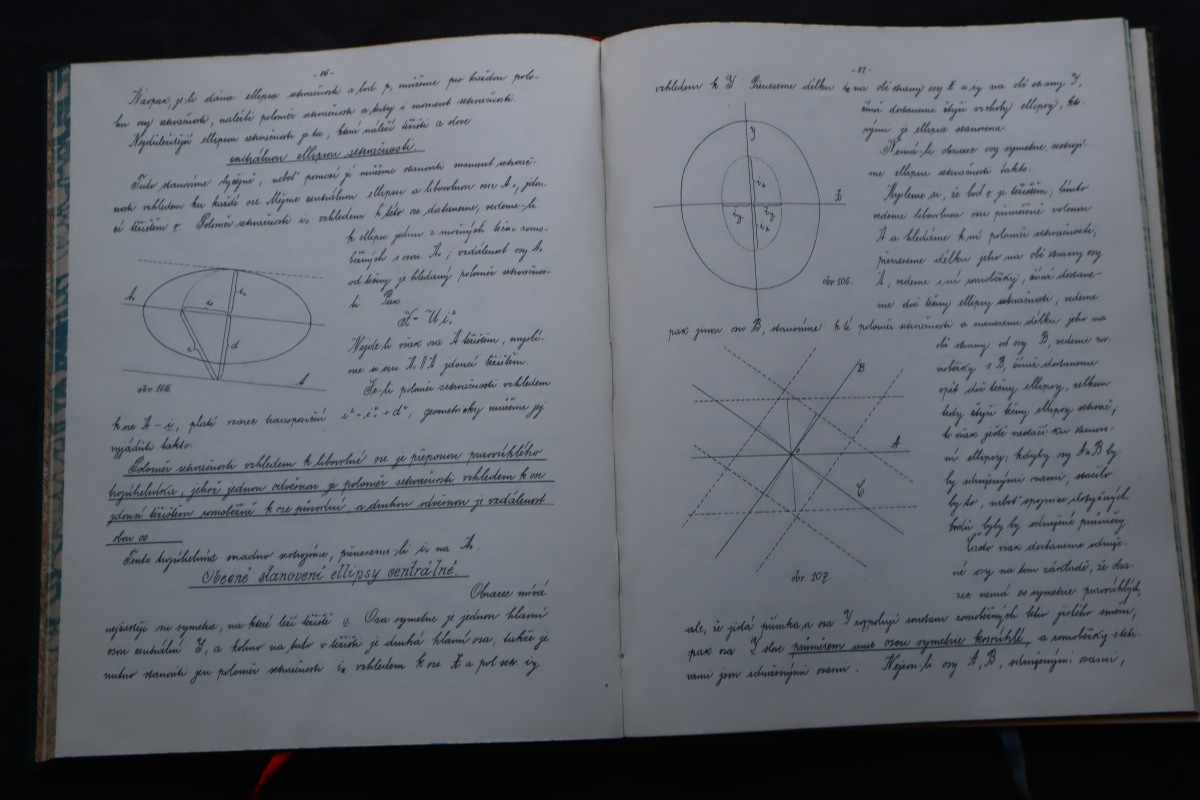 - 86 -
Naopak, je-li dána ellipsa setrvačnosti a bod p, můžeme pro každou polo-
hu osy setrvačnosti, nalésti poloměr setrvačnosti a tedy i moment setrvačnosti.
Nejdůležitější ellipsou setrvačnosti je ta, která náleží těžišti a slove
centrálnou ellipsou setrvačnosti.
Tuto stanovíme obyčejně, neboť pomocí jí můžeme stanoviti moment setrvač-
nosti vzhledem ku každé ose. Mějme centrálnou ellipsu a libovolnou osu A₀, jdou-
cí těžištěm. Poloměr setrvačnosti i₀ vzhledem k této ose dostaneme, vedeme-li
k ellipse jednu z možných tečen rovno-
běžných s osou A₀; vzdálenost osy A₀
od tečny je hledaný poloměr setrvačnos-
ti. Pak
Nejde-li však osa A těžištěm, mysli-
me si osu A₀ ∥ A jdoucí těžištěm.
Je-li poloměr setrvačnosti vzhledem
A₀
i₀
i₀
i
d
A
obr. 105
k ose A - i, platí vzorec transposiční i² = i₀² + d²; geometricky můžeme jej
vyjádřiti takto:
Poloměr setrvačnosti vzhledem k libovolné ose je přeponou pravoúhlého
trojúhelníka, jehož jednou odvěsnou je poloměr setrvačnosti vzhledem k ose
jdoucí těžištěm rovnoběžně k ose původní a druhou odvěsnou je vzdálenost
obou os.
Tento trojúhelník snadno sestrojíme, přeneseme-li i₀ na A₀.
Obecné stanovení ellipsy centrálné.
Obrazec mívá
nejčastěji osu symetrie, na které leží těžiště. Osa symetrie je jednou hlavní
osou centrální Y, a kolmo na tuto v těžišti je druhá hlavní osa, takže je
nutno stanoviti jen poloměr setrvačnosti iₓ vzhledem k ose X a pol. setr. i_y
- 87 -
vzhledem k Y. Přeneseme délku iₓ na obě strany osy X a i_y na obě strany Y,
čímž dostaneme čtyři vrcholy ellipsy, kte-
rými je ellipsa stanovena.
Nemá-li obrazec osy symetrie, sestrojí-
me ellipsu setrvačnosti takto:
Mysleme si, že bod je těžištěm; tímto
vedeme libovolnou osu přiměřeně volenou
A a hledáme k ní poloměr setrvačnosti,
přeneseme délku jeho na obě strany osy
A, vedeme s ní rovnoběžky, čímž dostane-
me dvě tečny ellipsy setrvačnosti, vedeme
Y
X
iₓ
i_y
i_y
iₓ
obr. 106.
pak jinou osu B, stanovíme k té poloměr setrvačnosti a naneseme délku jeho na
obě strany od osy B, vedeme rov-
noběžky s B, čímž dostaneme
opět dvě tečny ellipsy, celkem
tedy čtyři tečny ellipsy setrvač.;
to však ještě nestačí ku stanove-
ní ellipsy; kdyby osy A a B by-
ly sdruženými osami, stačilo
by to, neboť spojnice dotyčných
bodů byly by sdružené průměry.
Často však dostaneme sdruže-
né osy na tom základě, že obra-
zec nemá os symetrie pravoúhlých,
B
A
C
obr. 107
ale, že jistá přímka, a osa Y rozpoluje soustavu rovnoběžných toho jistého směru,
pak osa Y slove průměrem aneb osou symetrie kosoúhlé, a rovnoběžky s těti-
vami jsou sdruženými osami. Nejsou-li osy A, B, sdruženými osami,